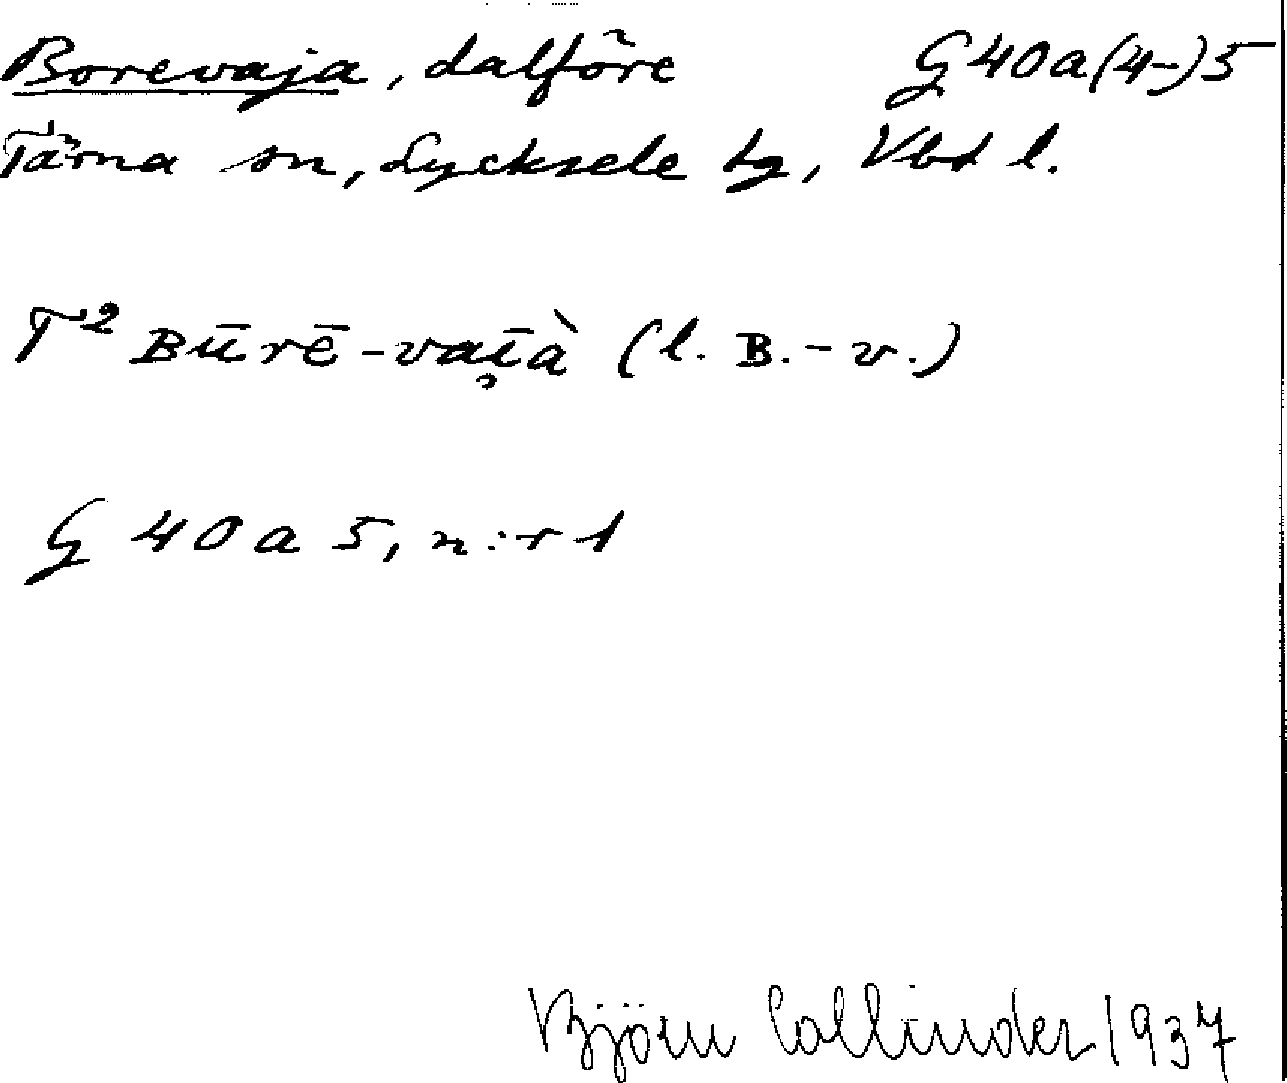 Borevaja, dalföre G 40 a (4-) 5
Tärna sn, Lycksele tg, Vbd l.
T² Būrē-vai̯ī̀à (l. B.-v.)
G 40 a 5, n:r 1
Björn Collinder 1937